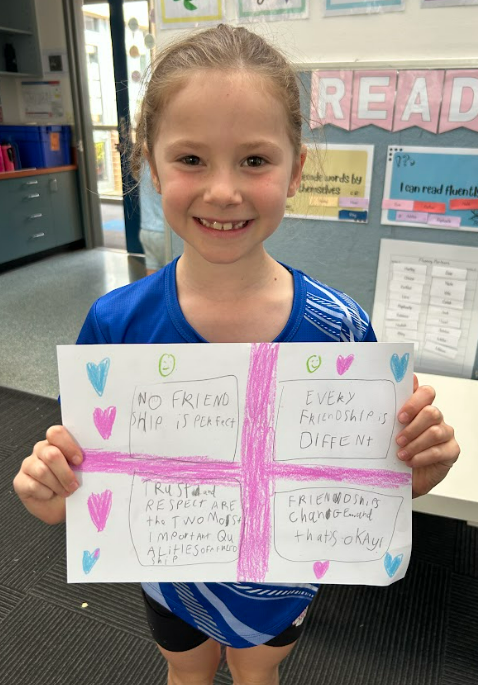 READ
decode words by
themselves
I can read fluently
NO FRIEND
SHIP iS PERFECT
EVERY
FRIENDSHIP iS
DIFFENt
TRUSt and
RESPECT ARE
the TWO MOSt
IMPORtANt QU
ALitiES OF FRIEND
SHIP
FRIENDSHiPS
chanGE and
that's okAy!